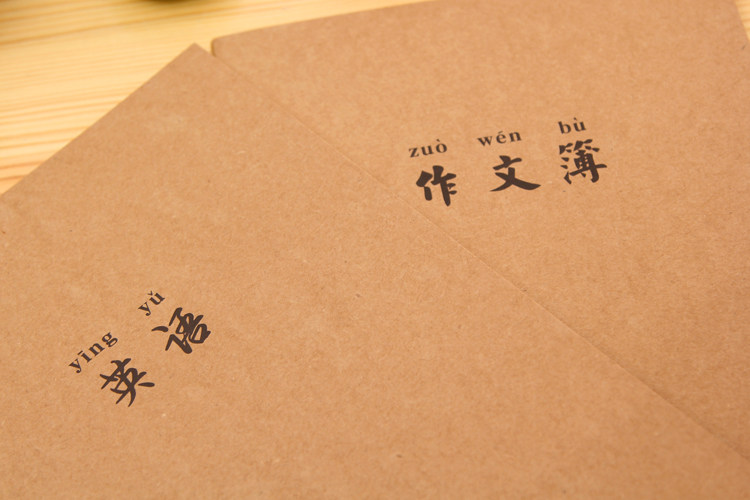 zuò wén bù
作文簿
yīng yǔ
英语